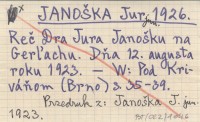 JANOŠKA Jur jun. 1926.
Reč Dra Jura Janošku na
Gerlachu. Dňa 12. augusta
roku 1923. — W: Pod Kri-
váňom (Brno) s. 35-39.
Przedruk z: Janoška J. jun.
1923.